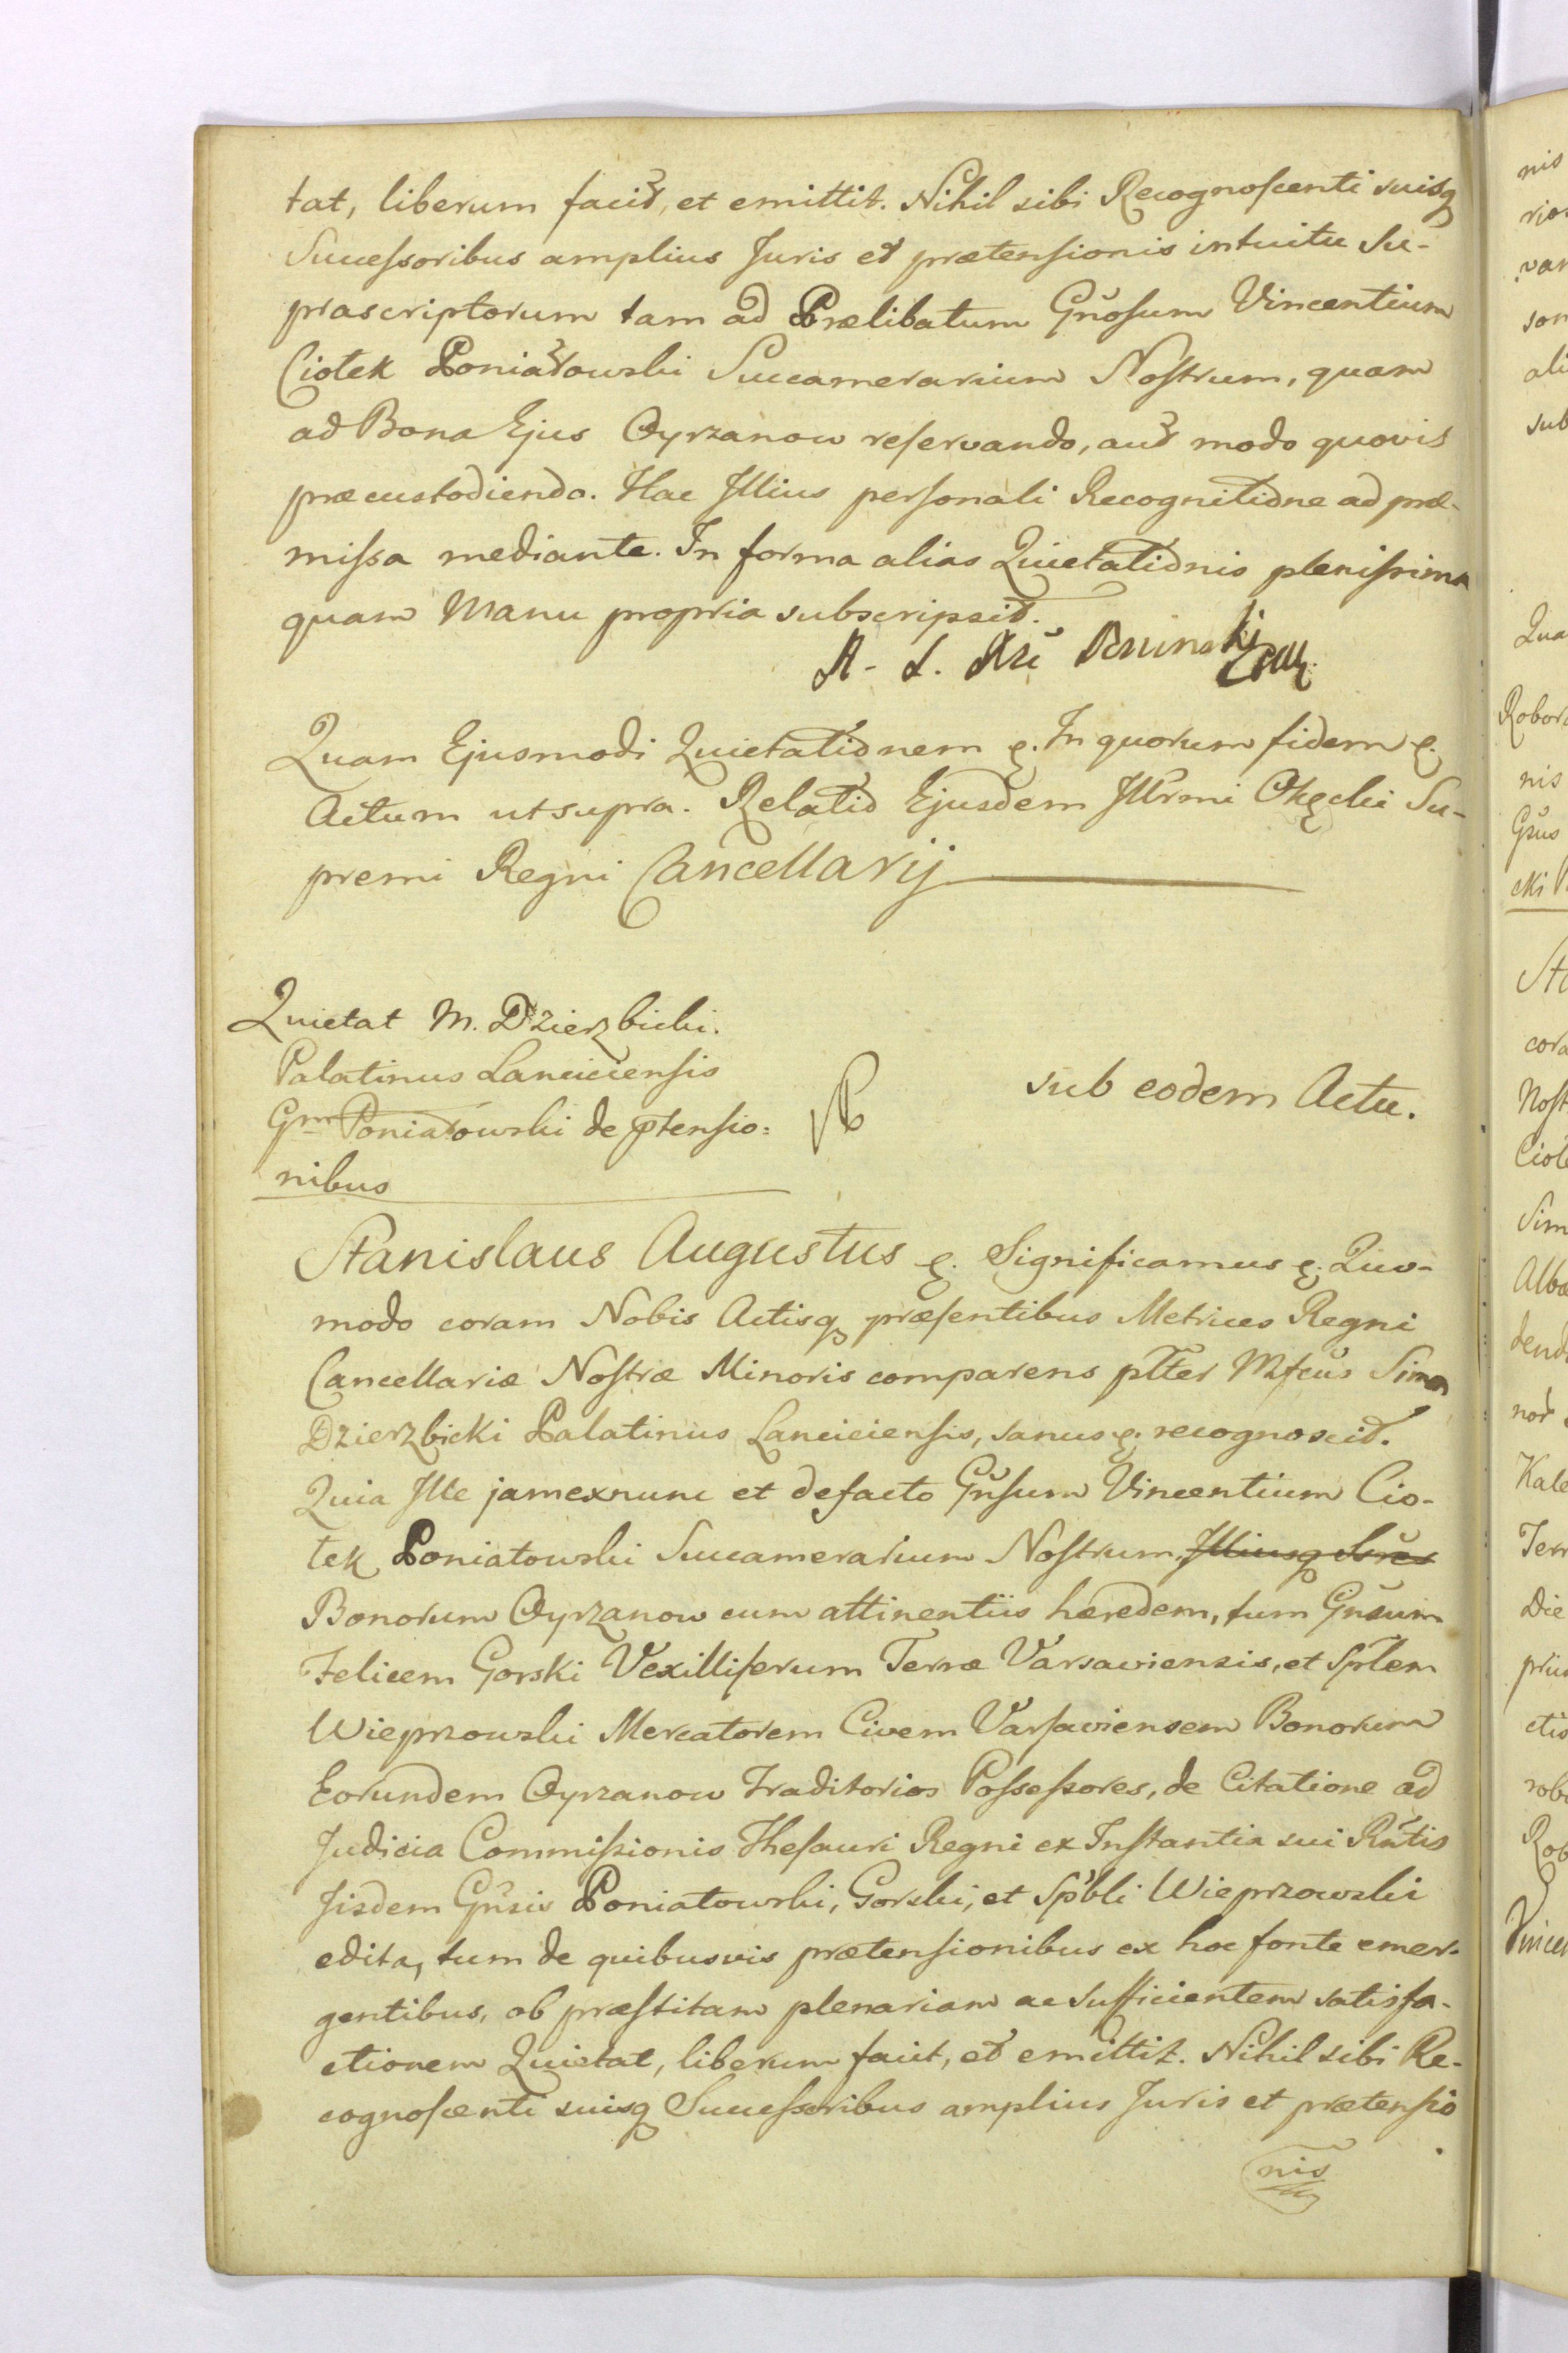 tat, liberum facit, et emittit. Nihil sibi Recognoscenti suisq
Successoribus amplius Juris et prætensionis intuitu Su-
prascriptorum tam ad Prælibatum Gnosum Vincentium
Ciołek Poniatowski Succamerarium Nostrum, quam
ad Bona Ejus Oyrzanow reservando, aut modo quovis
præcustodiendo. Hac Illius personali Recognitione ad præ-
missa mediante. In forma alias Quietationis plenissima
quam Manu propria subscripsit.
A. L.
Quam Ejusmodi Quietationem &. In quorum fidem &.
Actum ut supra. Relatio Ejusdem Illrmi Okęcki Su-
premi Regni Cancellarij
Quietat M. Dzierzbicki.
Palatinus Lanciciensis
Gm Poniatowski de ptensio:
nibus
sub eodem Actu.
Stanislaus Augustus &. Significamus &. Quo-
modo coram Nobis Actisq præsentibus Metrices Regni
Cancellariæ Nostræ Minoris comparens plter Mfcus Simon
Dzierzbicki Palatinus Lanciciensis, sanus &. recognoscit.
Quia Ille jam exnunc et defacto Gnsum Vincentium Cio-
łek Poniatowski Succamerarium Nostrum, Illiusq Scres
Bonorum Oyrzanow cum attinentiis hæredem, tum Gnsum
Felicem Gorski Vexilliferum Terræ Varsaviensis, et Sptlem
Wieprzowski Mercatorem Civem Varsaviensem Bonorum
Eorundem Oyrzanow Traditorios Possessores, de Citatione ad
Judicia Commissionis Thesauri Regni ex Instantia sui Rntis
Jisdem Gnsis Poniatowski, Gorski, et Spbli Wieprzowski
edita, tum de quibusvis prætensionibus ex hoc fonte emer-
gentibus, ob præstitam plenariam ac sufficientem satisfa-
ctionem Quietat, liberum facit, et emittit. Nihil sibi Re-
cognoscenti suisq Successoribus amplius Juris et prætensio
nis